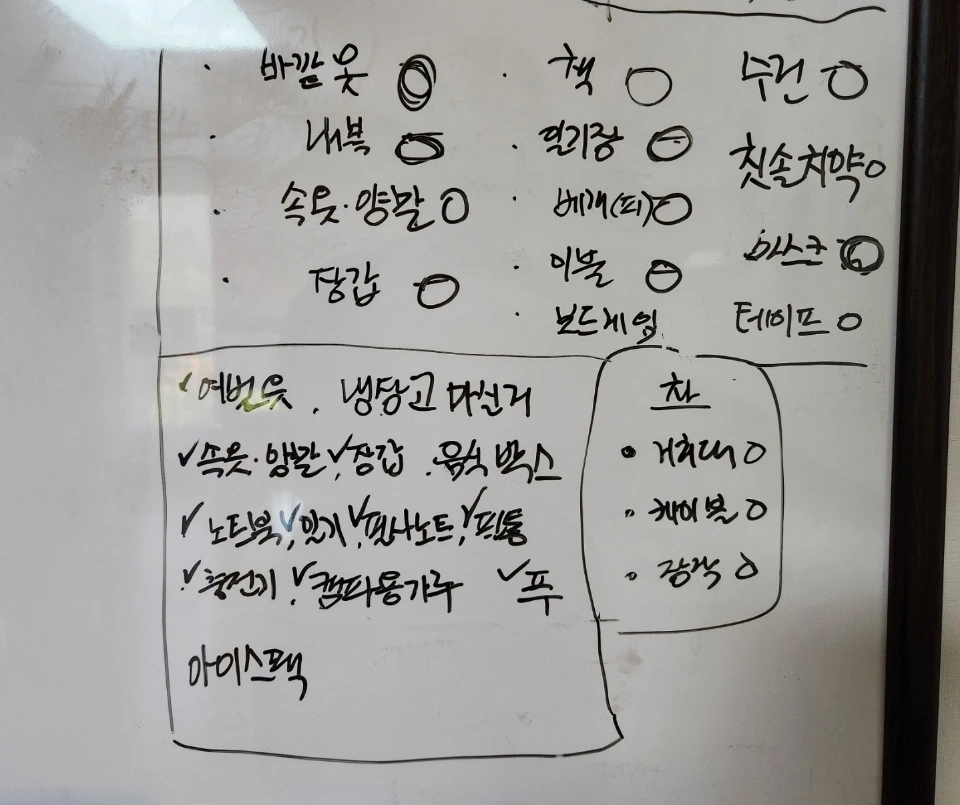 바깥옷 ○
내복 ○
속옷·양말 ○
장갑 ○
책 ○
필기장 ○
베개(피) ○
이불 ○
보드게임
수건 ○
칫솔치약 ○
마스크 ○
테이프 ○
✓여벌옷 . 냉장고
✓속옷·양말 ✓장갑 . 음식 박스
✓노트북 ✓일기 ✓필사노트 ✓필통
✓충전기 ✓캠파용가루 ✓푸
아이스팩
차
• 거치대 ○
• 케이블 ○